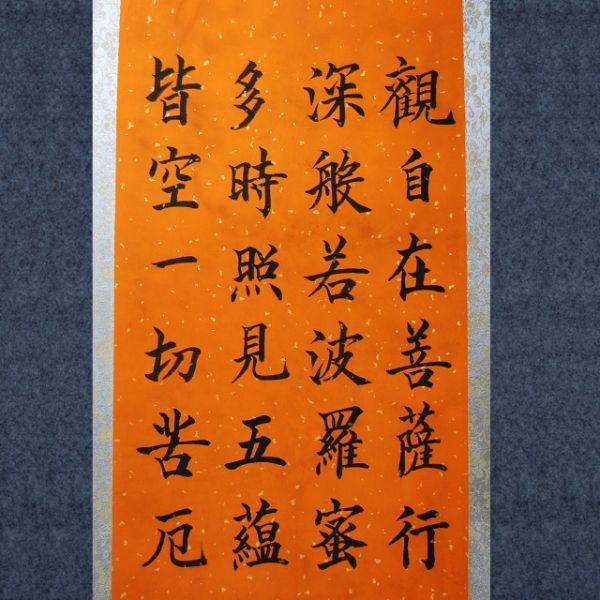 觀自在菩薩行
深般若波羅蜜
多時照見五蘊
皆空一切苦厄